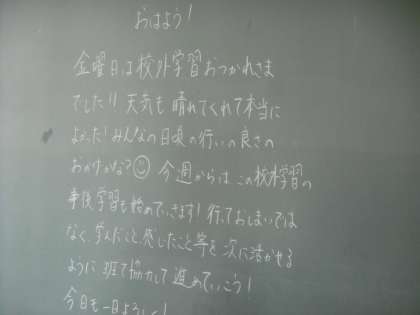 おはよう!
金曜日は校外学習おつかれさま
でした!! 天気も晴れてくれて本当に
よかった! みんなの日頃の行いの良さの
おかげかな? 今週からはこの校外学習の
事後学習も始めていきます! 行っておしまいでは
なく、学んだこと、感じたこと等を次に活かせる
ように班で協力して進めていこう!
今日も一日よろしく!